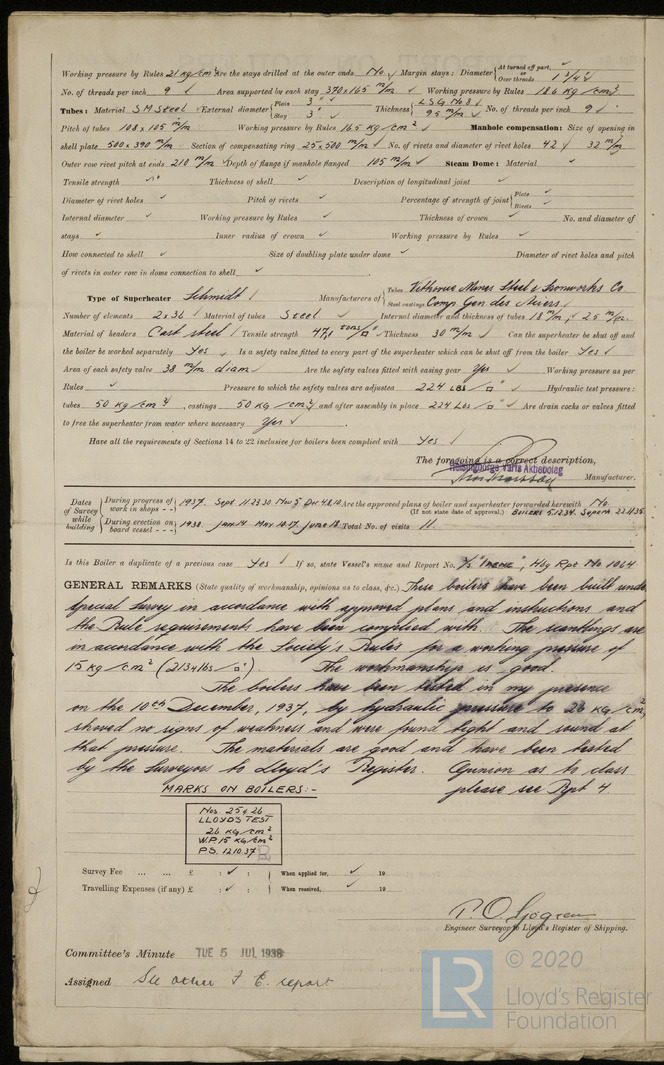 Working pressure by Rules 21 kg/cm² Are the stays drilled at the outer ends No ✓ Margin stays: Diameter {At turned off part, ✓ or Over threads 1 3/4" ✓
No. of threads per inch 9 ✓ Area supported by each stay 370 x 165 m/m Working pressure by Rules 18.6 kg/cm²
Tubes: Material S M Steel ✓ External diameter {Plain 3" ✓ Stay 3" ✓ Thickness {L.S.G. No 8 ✓ 9.5 m/m ✓ No. of threads per inch 9 ✓
Pitch of tubes 108 x 105 m/m Working pressure by Rules 16.5 kg/cm² ✓ Manhole compensation: Size of opening in
shell plate 500 x 390 m/m Section of compensating ring 25 x 500 m/m ✓ No. of rivets and diameter of rivet holes 42 ✓ 32 m/m
Outer row rivet pitch at ends 210 m/m ✓ Depth of flange if manhole flanged 105 m/m ✓ Steam Dome: Material ✓
Tensile strength ✓ Thickness of shell ✓ Description of longitudinal joint ✓
Diameter of rivet holes ✓ Pitch of rivets ✓ Percentage of strength of joint {Plate ✓ Rivets ✓
Internal diameter ✓ Working pressure by Rules ✓ Thickness of crown ✓ No. and diameter of
stays ✓ Inner radius of crown ✓ Working pressure by Rules ✓
How connected to shell ✓ Size of doubling plate under dome ✓ Diameter of rivet holes and pitch
of rivets in outer row in dome connection to shell ✓
Type of Superheater Schmidt Manufacturers of {Tubes Steel & Ironworks Co Steel castings Comp. Gen des Aciers
Number of elements Material of tubes Steel Internal diameter and thickness of tubes 18 m/m; 2.5 m/m
Material of headers Cast steel Tensile strength Thickness 30 m/m ✓ Can the superheater be shut off and
the boiler be worked separately Yes ✓ Is a safety valve fitted to every part of the superheater which can be shut off from the boiler Yes ✓
Area of each safety valve 38 m/m diam Are the safety valves fitted with easing gear Yes ✓ Working pressure as per
Rules ✓ Pressure to which the safety valves are adjusted 224 LBS/□" ✓ Hydraulic test pressure:
tubes 50 kg/cm² , castings 50 kg/cm² and after assembly in place 224 Lbs/□" ✓ Are drain cocks or valves fitted
to free the superheater from water where necessary Yes ✓
Have all the requirements of Sections 14 to 22 inclusive for boilers been complied with Yes ✓
The foregoing is a correct description,
Helsingborgs Varfs Aktiebolag
Manufacturer.
Dates of Survey while building {During progress of work in shops - - {1937. Sept. 11.23.30 Nov 5 Dec 4.8.10 Are the approved plans of boiler and superheater forwarded herewith No
(If not state date of approval.) Boilers 5.12.34. Superh. 22.11.35
During erection on board vessel - - - {1938 Jan 14 May 10.17. June 18 Total No. of visits 11
Is this Boiler a duplicate of a previous case Yes ✓ If so, state Vessel's name and Report No. Hbg Rpt No 1064
GENERAL REMARKS (State quality of workmanship, opinions as to class, &c.) These boilers have been built under
special survey in accordance with approved plans and instructions and
the Rule requirements have been complied with. The scantlings are
in accordance with the Society's Rules for a working pressure of
15 kg/cm² (213 4 lbs/□"). The workmanship is good.
The boilers have been tested in my presence
on the 10th December, 1937, by hydraulic pressure to 26 kg/cm²,
showed no signs of weakness and were found tight and sound at
that pressure. The materials are good and have been tested
by the Surveyors to Lloyd's Register. Opinion as to class
please see Rpt 4.
MARKS ON BOILERS:-
Nos 25 & 26
LLOYD'S TEST
26 KG/CM²
W.P. 15 KG/CM²
P.S. 12.10.37
Survey Fee ... ... £ : ✓ : When applied for, ✓ 19
Travelling Expenses (if any) £ : ✓ : When received, ✓ 19
Engineer Surveyor to Lloyd's Register of Shipping.
Committee's Minute TUE 5 JUL 1938
Assigned See other F. E. report
© 2020
LR Lloyd's Register
Foundation